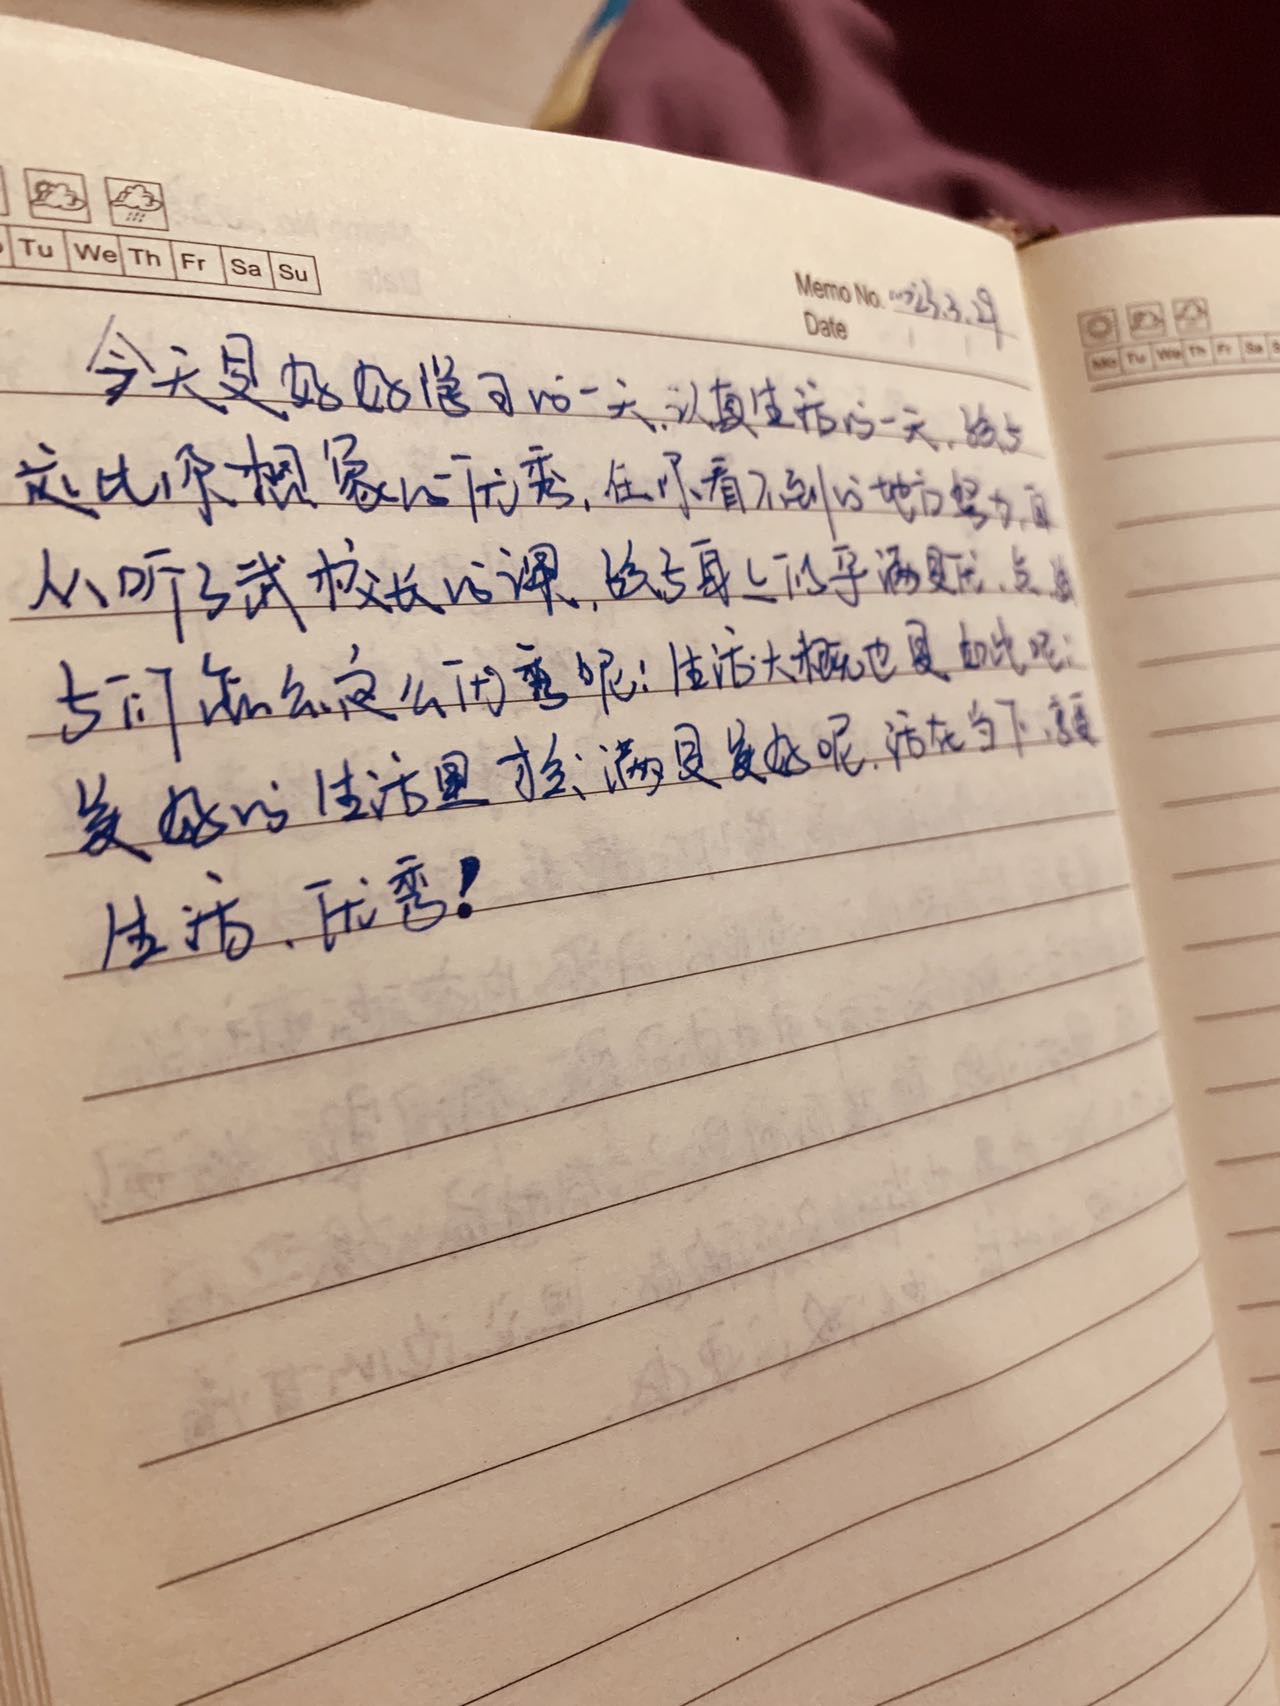 Tu We Th Fr Sa Su
Memo No. 2023.3.29
Date
Mo Tu We Th Fr Sa
今天是好好学习的一天,认真生活的一天,
比你想象的优秀,在你看不到的地方努力,自
从听了武校长的课,身上似乎满是优点,
们怎么这么优秀呢!生活大概也是如此吧:
美好的生活里才会满是美好呢,活在当下,享受
生活、优秀!